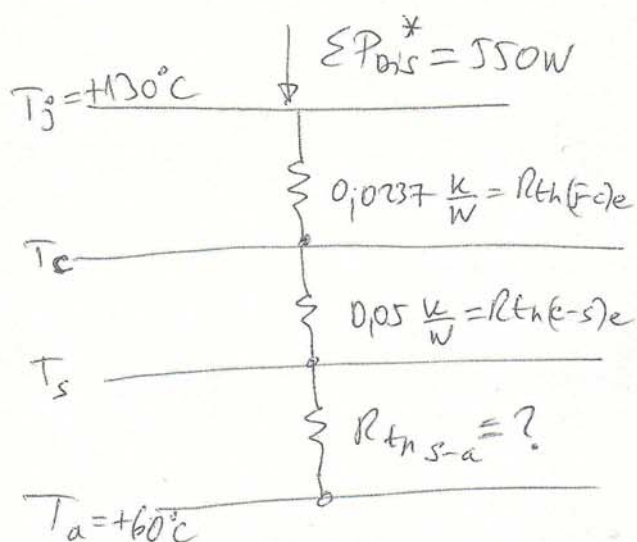 ΣP_Dis* = 550W
Tj = +130°C
0,0237 K/W = Rth(j-c)e
Tc
0,05 K/W = Rth(c-s)e
Ts
Rth s-a = ?
Ta = +60°C